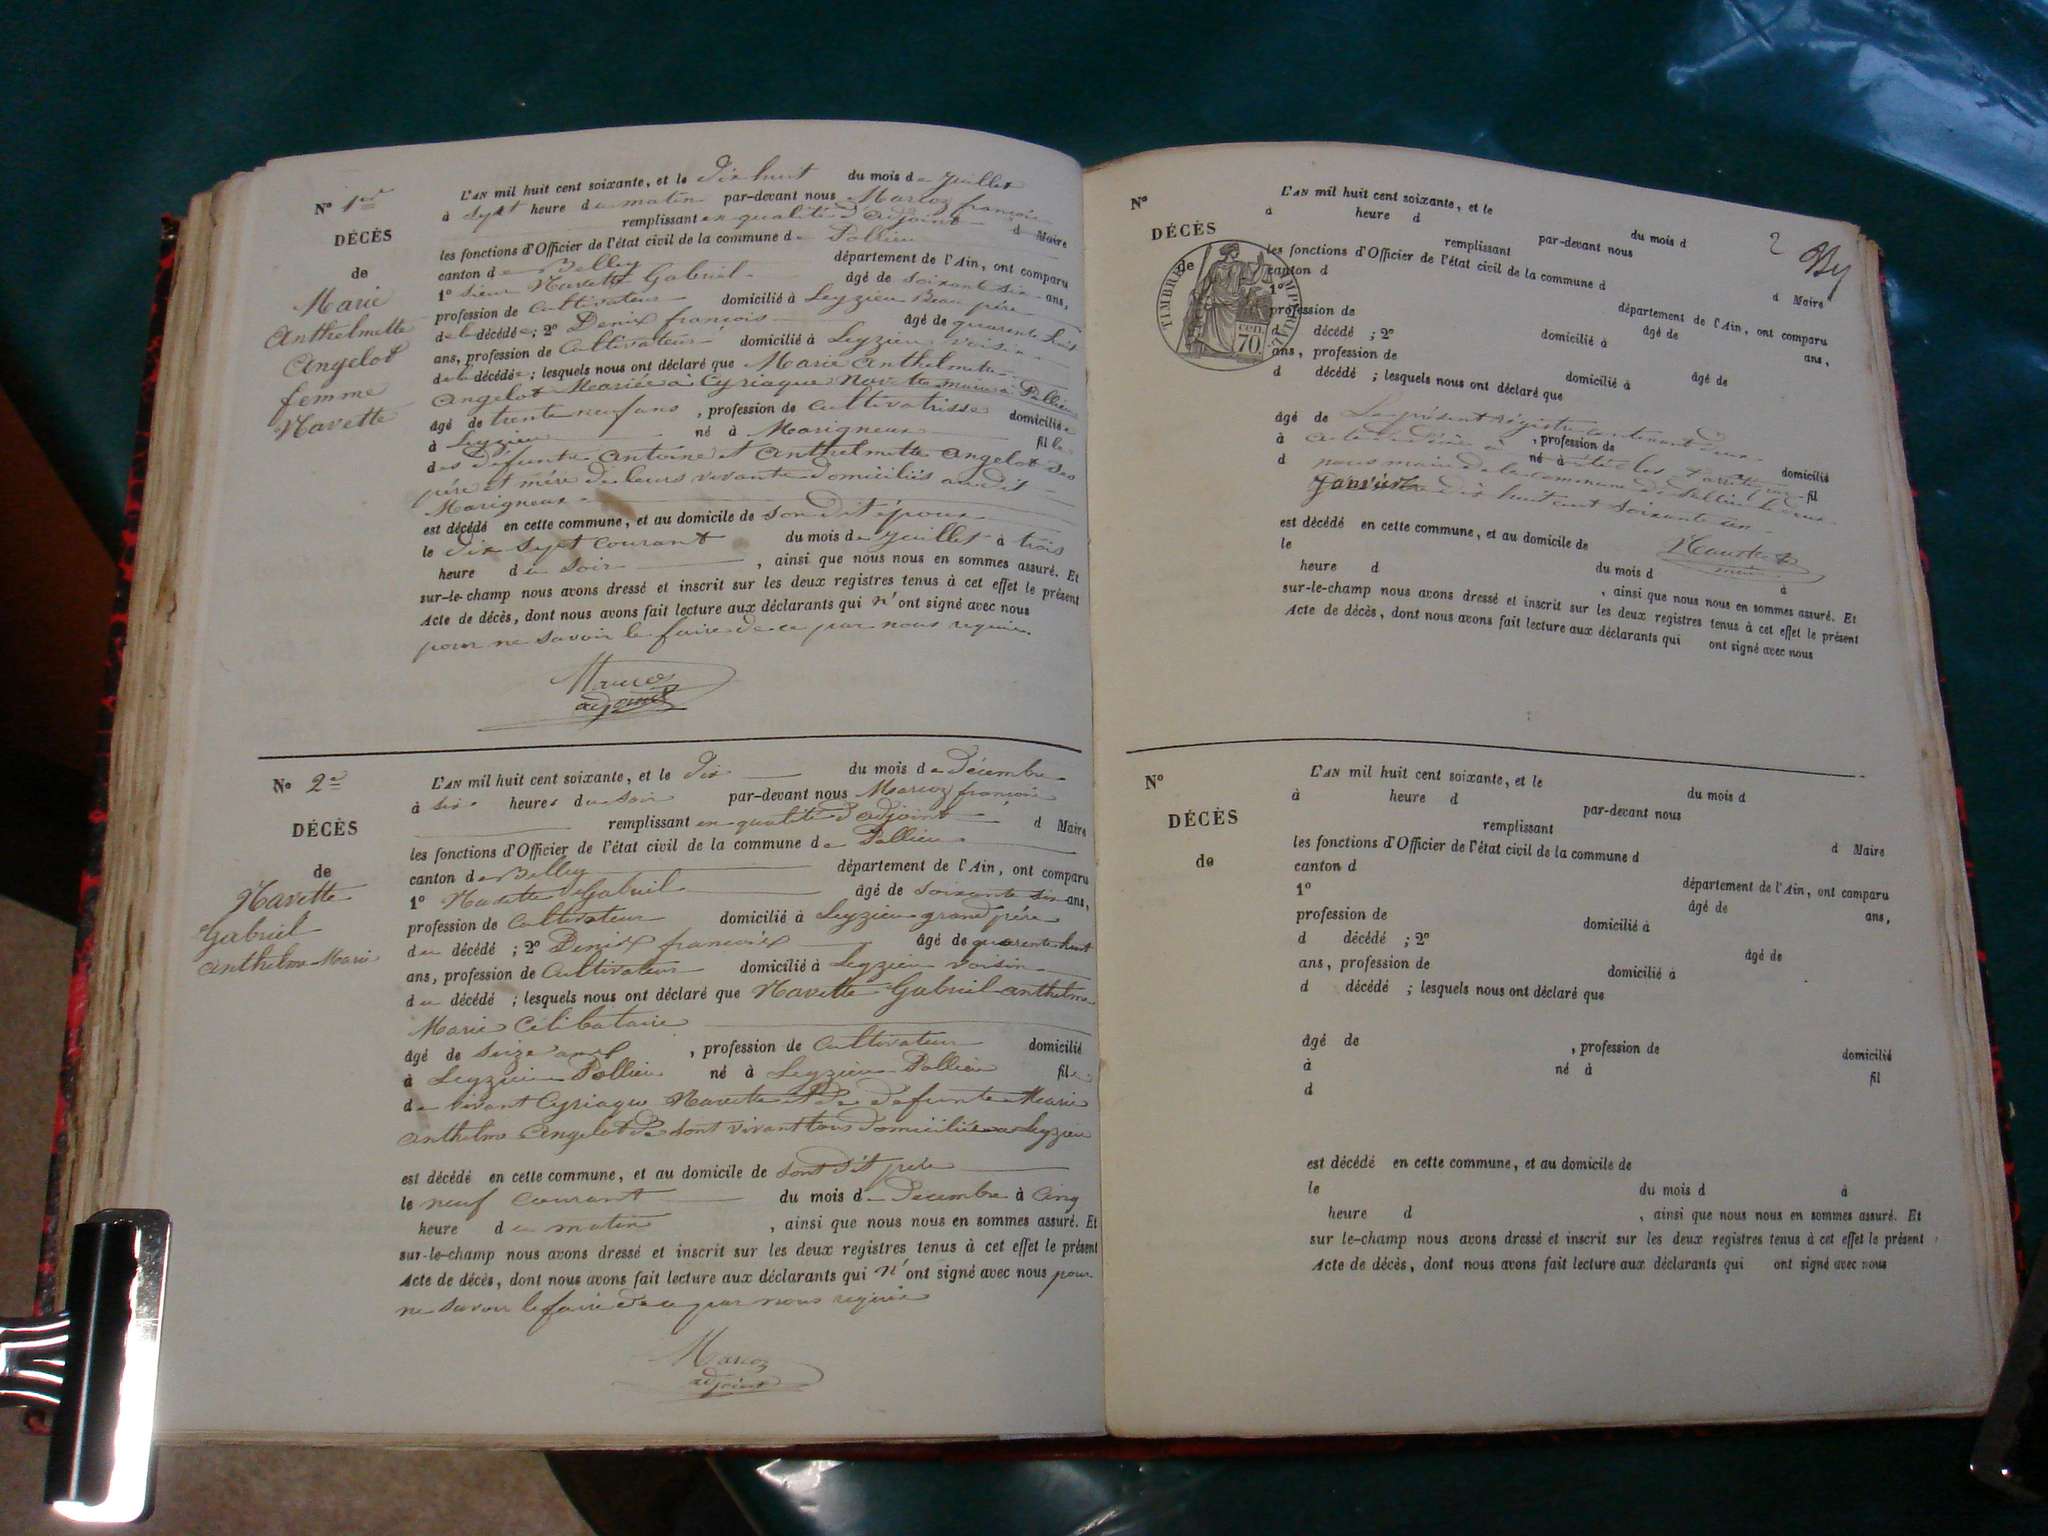 N° 1er
DÉCÈS
de
Marie
Anthelmette
Angelot
femme
Navette
L'AN mil huit cent soixante, et le dix huit du mois de Juillet
à sept heure du matin par-devant nous Marcoz françois
remplissant en qualité d'adjoint d Maire
les fonctions d'Officier de l'état civil de la commune de Pollieu
canton de Belley département de l'Ain, ont comparu
1° sieur Navette Gabriel âgé de soixante six ans,
profession de Cultivateur domicilié à Leyzieu Beau père
de la décédée ; 2° Denix françois âgé de quarente huit
ans, profession de Cultivateur domicilié à Leyzieu voisin
de la décédée ; lesquels nous ont déclaré que Marie Anthelmette
Angelot Mariée à Cyriaque Navette maire à Pollieu
âgé de trente neuf ans , profession de Cultivatrisse domiciliée
à Leyzieu né à Marigneux fille
des défunts Antoine et Anthelmette Angelot ses
père et mère de leurs vivants domiciliés audit
Marigneux
est décédé en cette commune, et au domicile de son dit époux
le dix sept courant du mois de Juillet à trois
heure du soir , ainsi que nous nous en sommes assuré. Et
sur-le-champ nous avons dressé et inscrit sur les deux registres tenus à cet effet le présent
Acte de décès, dont nous avons fait lecture aux déclarants qui n'ont signé avec nous
pour ne savoir le faire de ce par nous requis.
Marcoz
adjoint
N° 2e
DÉCÈS
de
Navette
Gabriel
Anthelme Marie
L'AN mil huit cent soixante, et le dix du mois de Décembre
à six heures du soir par-devant nous Marcoz françois
remplissant en qualité d'adjoint d Maire
les fonctions d'Officier de l'état civil de la commune de Pollieu
canton de Belley département de l'Ain, ont comparu
1° Navette Gabriel âgé de soixante six ans,
profession de Cultivateur domicilié à Leyzieu grand père
du décédé ; 2° Denix françoix âgé de quarente huit
ans, profession de Cultivateur domicilié à Leyzieu voisin
du décédé ; lesquels nous ont déclaré que Navette Gabriel anthelme
Marie Célibataire
âgé de seize ans , profession de Cultivateur domicilié
à Leyzieu Pollieu né à Leyzieu Pollieu fils
de vivant Cyriaque Navette et de defunte Marie
Anthelme Angelot de dont vivant tous domiciliés a Leyzieu
est décédé en cette commune, et au domicile de sont dit père
le neuf courant du mois de Decembre à Cinq
heure du matin , ainsi que nous nous en sommes assuré. Et
sur-le-champ nous avons dressé et inscrit sur les deux registres tenus à cet effet le présent
Acte de décès, dont nous avons fait lecture aux déclarants qui n'ont signé avec nous pour
ne savoir le faire de ce par nous requis
Marcoz
adjoint
2
N°
DÉCÈS
de
TIMBRE IMPERIAL
70 cen.
L'AN mil huit cent soixante, et le du mois d
à heure d par-devant nous
remplissant d Maire
les fonctions d'Officier de l'état civil de la commune d
canton d département de l'Ain, ont comparu
1° âgé de ans,
profession de domicilié à
d décédé ; 2° âgé de
ans, profession de domicilié à
d décédé ; lesquels nous ont déclaré que
Le présent régistre contenant deux
âgé de , profession de domicilié
à né à fil
d
nous maire de la commune de Pollieu le deux
Janvier dix huit cent soixante un
est décédé en cette commune, et au domicile de
Navette
maire
le du mois d à
heure d , ainsi que nous nous en sommes assuré. Et
sur-le-champ nous avons dressé et inscrit sur les deux registres tenus à cet effet le présent
Acte de décès, dont nous avons fait lecture aux déclarants qui ont signé avec nous
N°
DÉCÈS
de
L'AN mil huit cent soixante, et le du mois d
à heure d par-devant nous
remplissant d Maire
les fonctions d'Officier de l'état civil de la commune d
canton d département de l'Ain, ont comparu
1° âgé de ans,
profession de domicilié à
d décédé ; 2° âgé de
ans, profession de domicilié à
d décédé ; lesquels nous ont déclaré que
âgé de , profession de domicilié
à né à fil
d
est décédé en cette commune, et au domicile de
le du mois d à
heure d , ainsi que nous nous en sommes assuré. Et
sur le-champ nous avons dressé et inscrit sur les deux registres tenus à cet effet le présent
Acte de décès, dont nous avons fait lecture aux déclarants qui ont signé avec nous